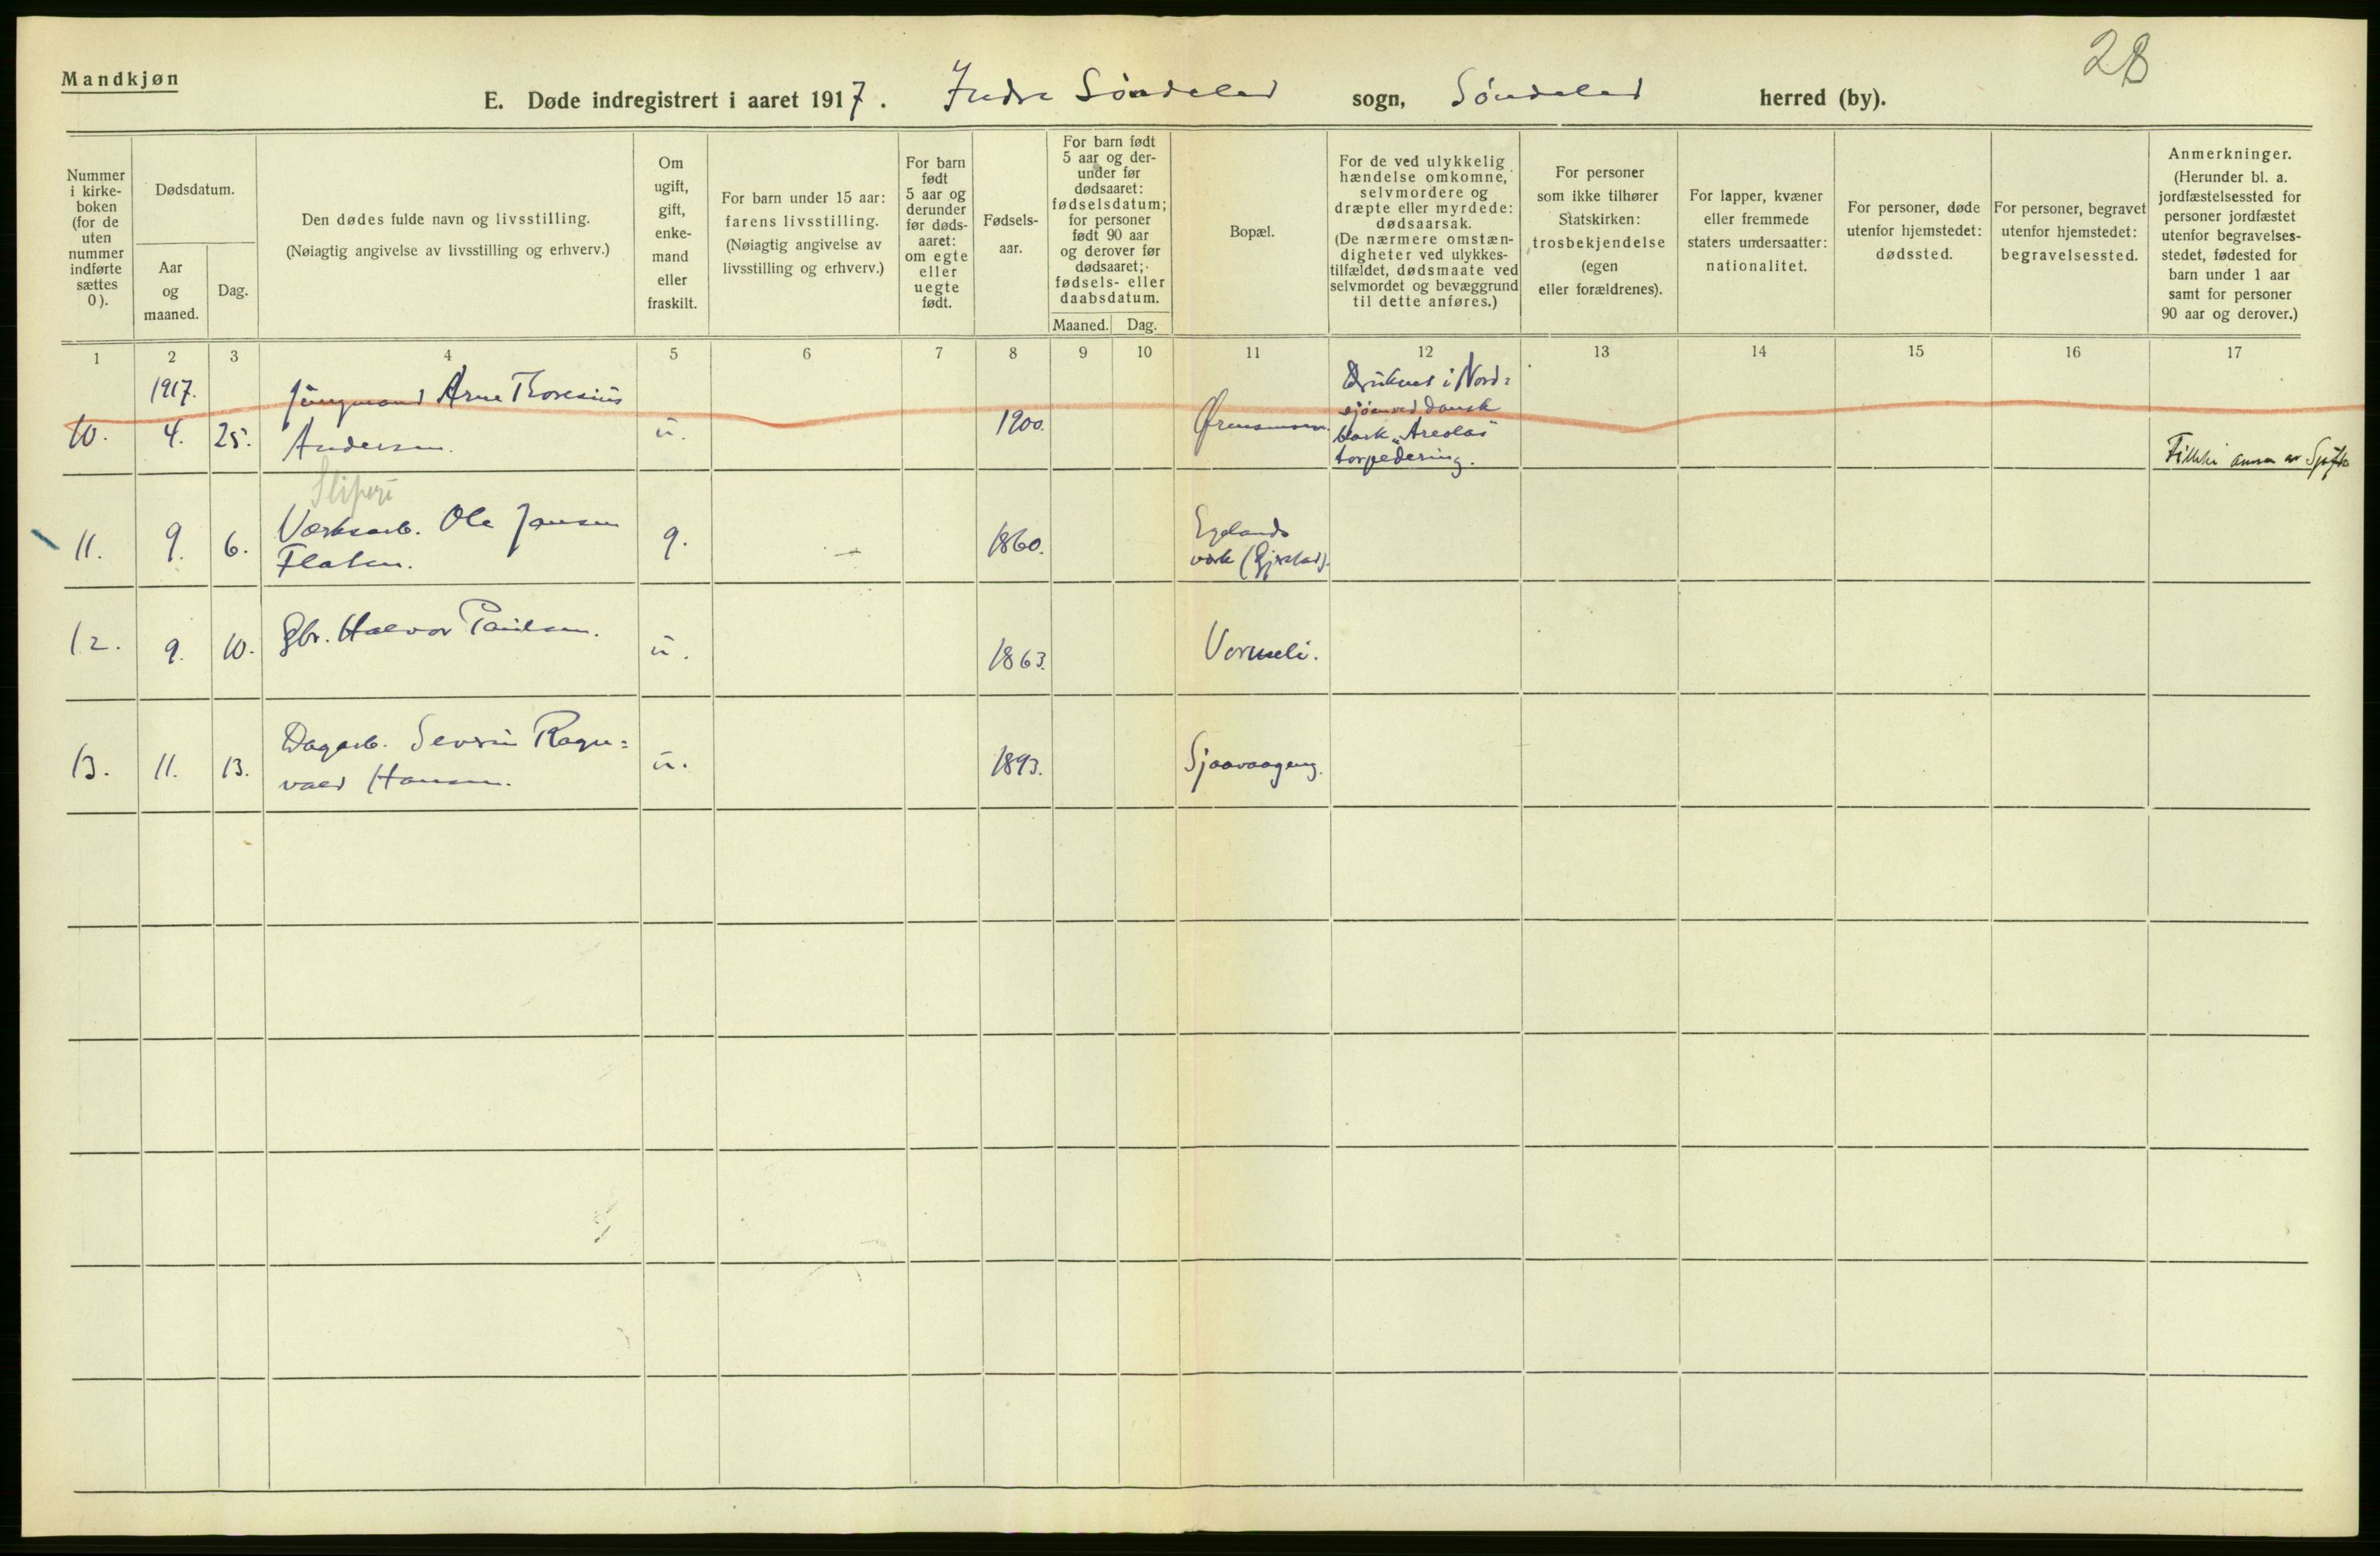 28
Mandkjøn
E. Døde indregistrert i aaret 1917. Indre Søndeled sogn, Søndeled herred (by).
Nummer
i kirke-
boken
(for de
uten
nummer
indførte
sættes
0).
Dødsdatum.
Aar
og
maaned.
Dag.
Den dødes fulde navn og livsstilling.
(Nøiagtig angivelse av livsstilling og erhverv.)
Om
ugift,
gift,
enke-
mand
eller
fraskilt.
For barn under 15 aar:
farens livsstilling.
(Nøiagtig angivelse av
livsstilling og erhverv.)
For barn
født
5 aar og
derunder
før døds-
aaret:
om egte
eller
uegte
født.
Fødsels-
aar.
For barn født
5 aar og der-
under før
dødsaaret:
fødselsdatum;
for personer
født 90 aar
og derover før
dødsaaret;
fødsels- eller
daabsdatum.
Maaned. Dag.
Bopæl.
For de ved ulykkelig
hændelse omkomne,
selvmordere og
dræpte eller myrdede:
dødsaarsak.
(De nærmere omstæn-
digheter ved ulykkes-
tilfældet, dødsmaate ved
selvmordet og bevæggrund
til dette anføres.)
For personer
som ikke tilhører
Statskirken:
trosbekjendelse
(egen
eller forældrenes).
For lapper, kvæner
eller fremmede
staters undersaatter:
nationalitet.
For personer, døde
utenfor hjemstedet:
dødssted.
For personer, begravet
utenfor hjemstedet:
begravelsessted.
Anmerkninger.
(Herunder bl. a.
jordfæstelsessted for
personer jordfæstet
utenfor begravelses-
stedet, fødested for
barn under 1 aar
samt for personer
90 aar og derover.)
1 2 3 4 5 6 7 8 9 10 11 12 13 14 15 16 17
1917.
10. 4. 25. Jungmand Arne Thoresius
Andersen. u. 1900.
Druknet i Nord=
sjøen ved dansk
bark "
torpedering.
Sliperi
11. 9. 6. Værksarb. Ole Jansen
Flaten. g. 1860. Egelands
værk (Gjerstad).
12. 9. 10. Gbr. Halvor Paulsen. u. 1863. Vormeli.
13. 11. 13. Dagarb. Severin Ragn=
vald Hansen. u. 1893. Sjaavaageng.